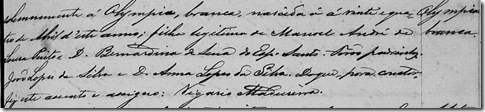 solemnemente á Olympia, branca, nascida á vinte e qua- Olympia
tro de Abril d'este anno; filha legitima de Manoel André de branca
Souza Pinto e D. Bernardina de Sena do Esp. Santo. Forão padrinhos
João Lopes da Silva e D. Anna Lopes da Silva. Do que para constar
fiz este assento e assigno: Vigario Madureira.